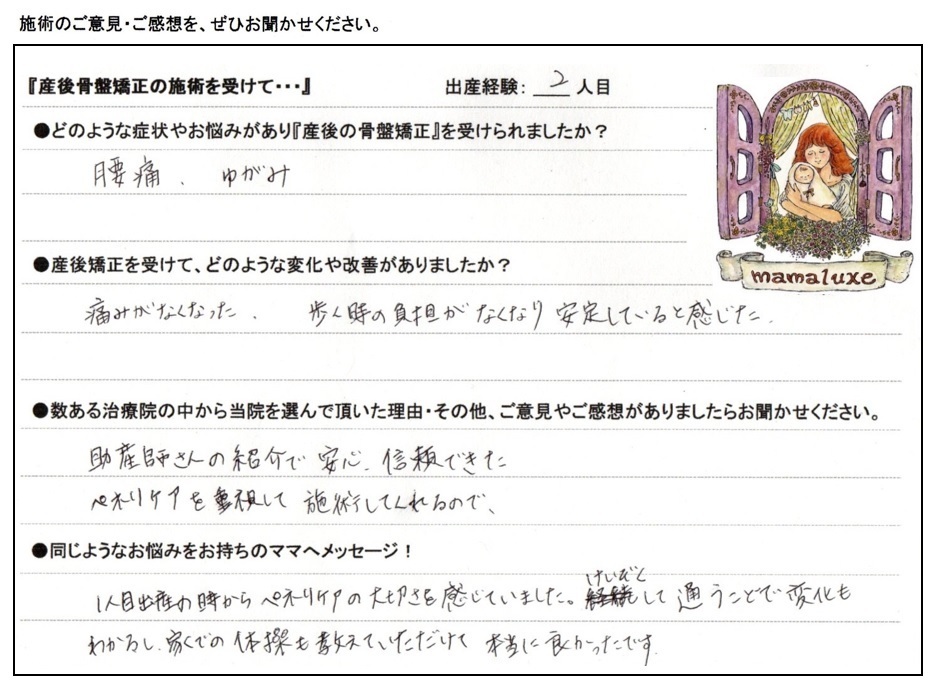 施術のご意見・ご感想を、ぜひお聞かせください。
『産後骨盤矯正の施術を受けて・・・』 出産経験: 2 人目
●どのような症状やお悩みがあり『産後の骨盤矯正』を受けられましたか？
腰痛、ゆがみ
mamaluxe
●産後矯正を受けて、どのような変化や改善がありましたか？
痛みがなくなった、歩く時の負担がなくなり安定していると感じた。
●数ある治療院の中から当院を選んで頂いた理由・その他、ご意見やご感想がありましたらお聞かせください。
助産師さんの紹介で安心、信頼できた
ペネリケアを重視して施術してくれるので、
●同じようなお悩みをお持ちのママへメッセージ！
1人目出産の時からペネリケアの大切さを感じていました。けいぞくして通うことで変化も
わかるし、家での体操も教えていただけて本当に良かったです。